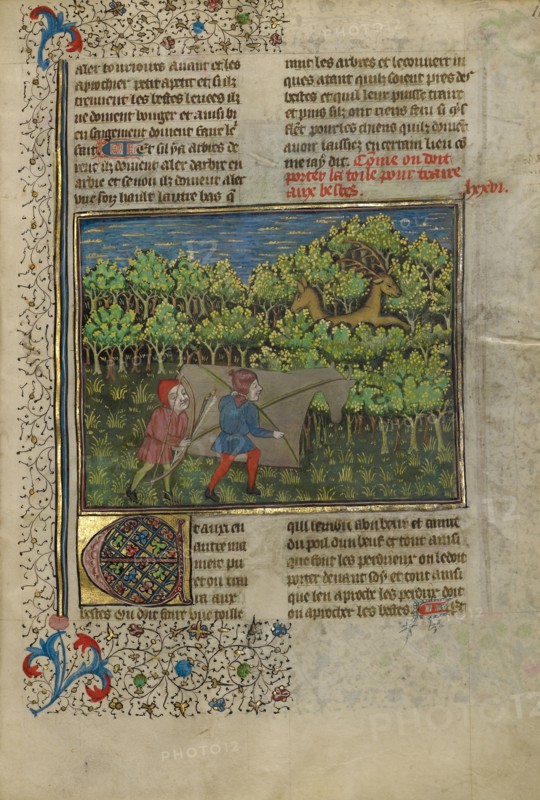 aler tourioirs auant et les
aprochier petit a petit et silz
treuuent les bestes leuees ilz
ne doiuent bouger et ainsi bi
en sargement doiuent faire le
sait. Et si y a arbres de
uent ilz doiuent aler darbre en
arbre et se non ilz doiuent aler
lun soy haulz lautre bas q
mut les arbres et le couuert iu
ques atant quilz soient pres des
bestes et quil leur puisse traire
et puis silz ont riens feru si cõ
pour les chiens quilz doiuent
auoir laissiez en certain lieu cõ
me iay dit. Cõme on doit
porter la toile pour traire
aux bestes. lxxvi.
t aux en
autre ma
niere pu
et on trai
re aux
bestes On doit faire vne toille
qui semble a bu beuf et tainte
du poil dun beuf et tout ainsi
que font les perdrieux on le doit
porter deuant soy et tout ainsi
que len aproche les perdrix doit
on aprochier les bestes. Et
PHOTO12